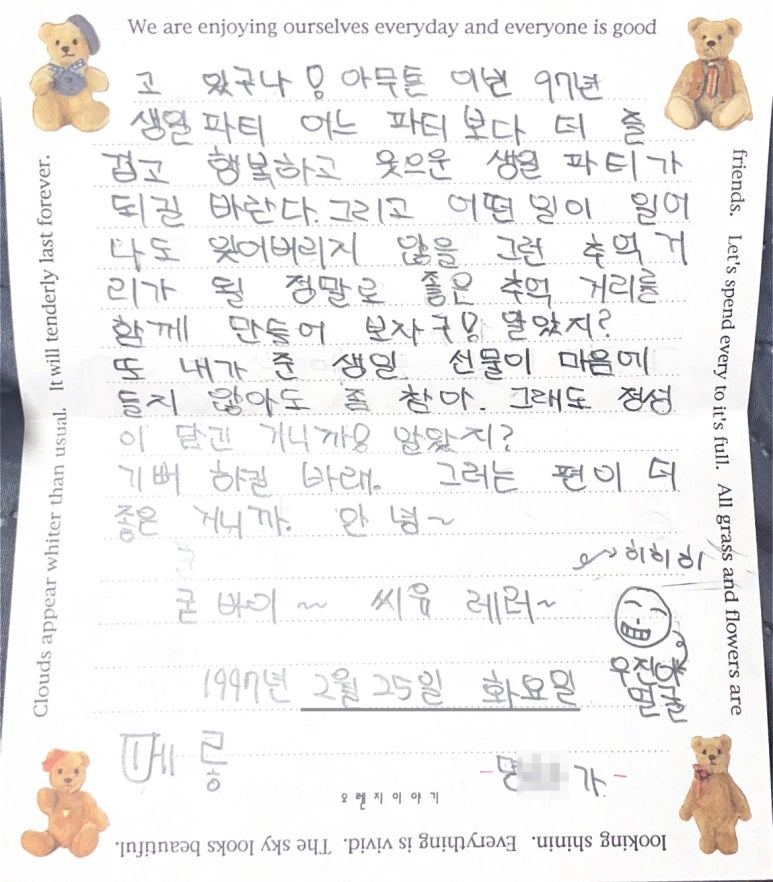 We are enjoying ourselves everyday and everyone is good
friends. Let's spend every to it's full. All grass and flowers are
looking shinin. Everything is vivid. The sky looks beautiful.
Clouds appear whiter than usual. It will tenderly last forever.
고 있구나! 아무튼 이번 97년
생일파티 어느 파티보다 더 즐
겁고 행복하고 웃으운 생일 파티가
되길 바란다. 그리고 어떤 일이 일어
나도 잊어버리지 않을 그런 추억 거
리가 될 정말로 좋은 추억 거리를
함께 만들어 보자구! 알았지?
또 내가 준 생일 선물이 마음에
들지 않아도 좀 참아. 그래도 정성
이 담긴 거니까! 알았지?
기뻐 하길 바래. 그러는 편이 더
좋은 거니까. 안녕~
히히히
굳바이~ 씨유 레러~
우진이
얼굴
1997년 2월 25일 화요일
메롱
-명 가-
오렌지이야기